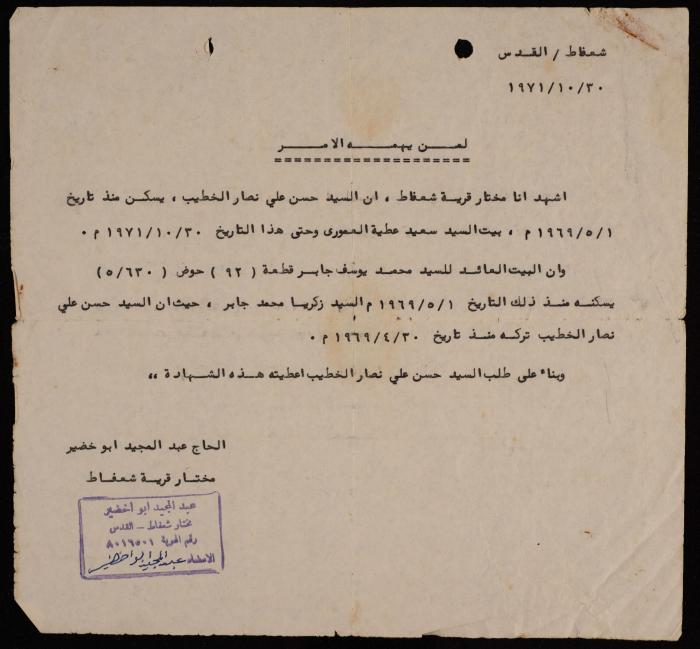 شعفاط / القدس
١٩٧١/١٠/٣٠
لمن يهمه الامر
اشهد انا مختار قرية شعفاط ، ان السيد حسن علي نصار الخطيب ، يسكن منذ تاريخ
١٩٦٩/٥/١ م ، بيت السيد سعيد عطية العمورى وحتى هذا التاريخ ١٩٧١/١٠/٣٠ م ٠
وان البيت العائد للسيد محمد يوسف جابر قطعة ( ٩٢ ) حوض ( ٥/٦٣٠ )
يسكنه منذ ذلك التاريخ ١٩٦٩/٥/١ م السيد زكريا محمد جابر ، حيث ان السيد حسن علي
نصار الخطيب تركه منذ تاريخ ١٩٦٩/٤/٣٠ م ٠
وبناء على طلب السيد حسن علي نصار الخطيب اعطيته هذه الشهادة ،،
الحاج عبد المجيد ابو خضير
مختار قرية شعفاط
عبد المجيد ابو اخضير
مختار شعفاط - القدس
رقم الهوية ٨٠١٦٥٠١
الامضاء عبد المجيد ابو اخضير